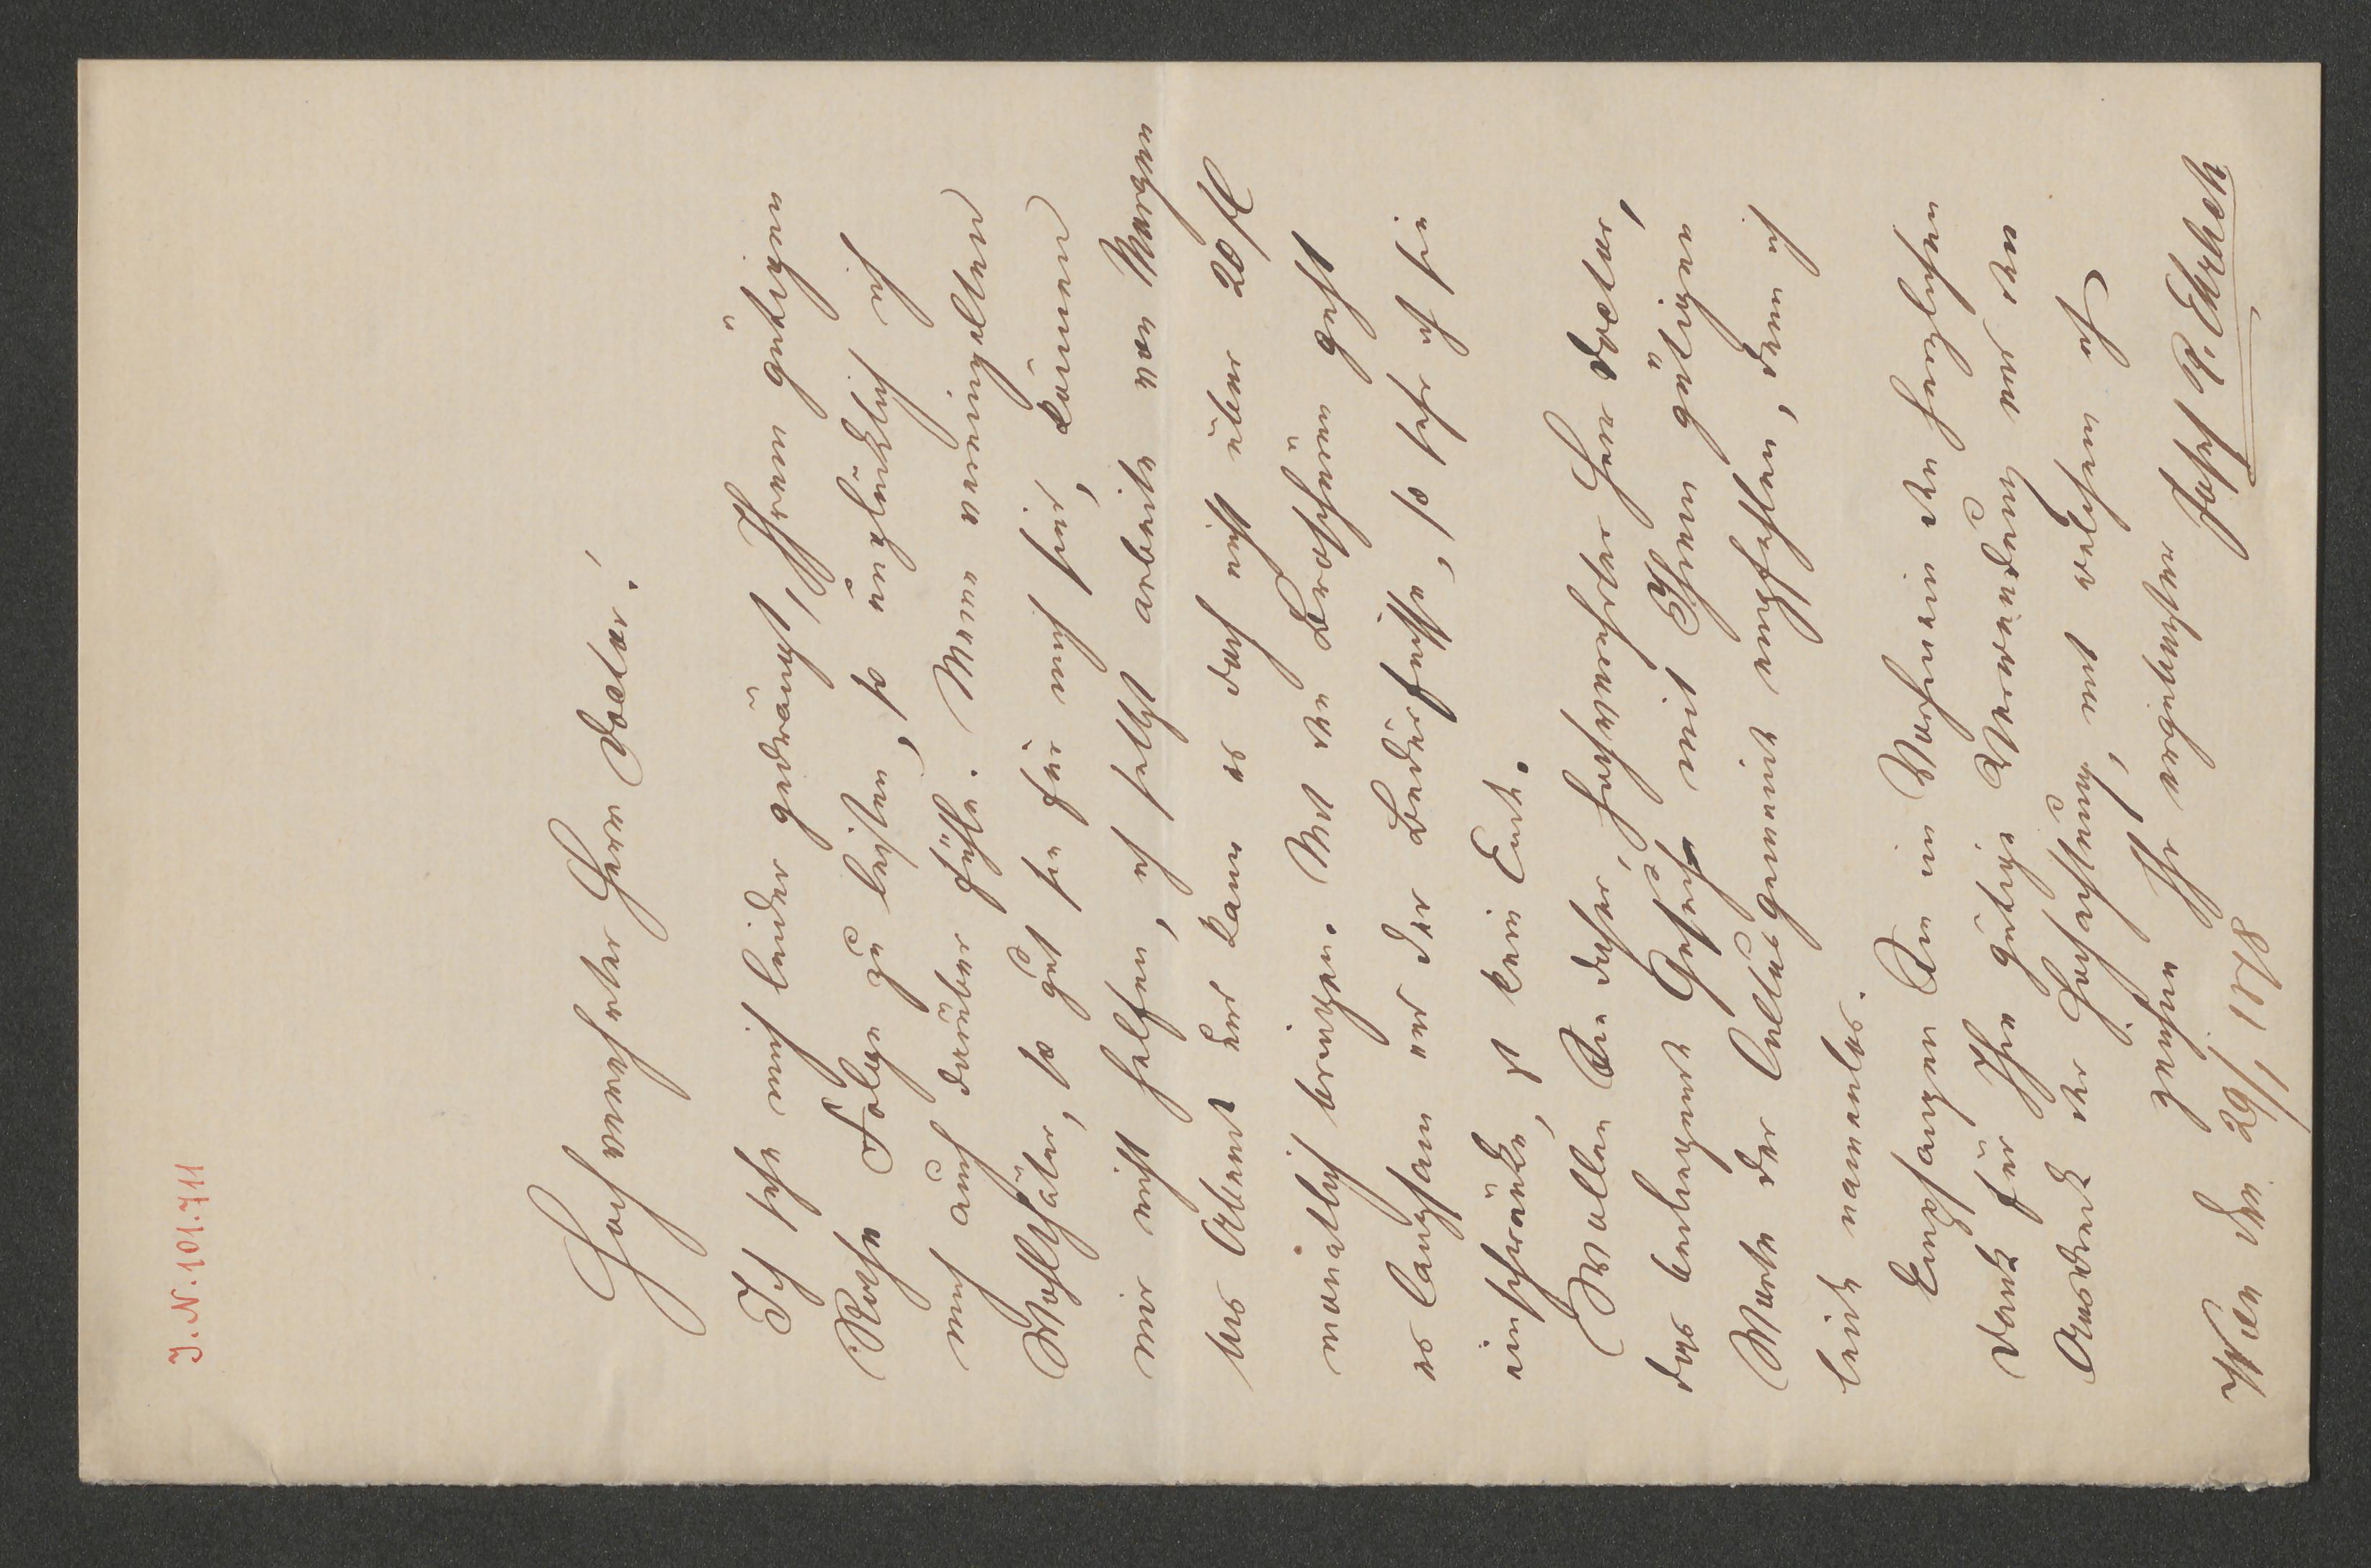 J. N. 101.711
Hochverehrter Herr Doctor!
Ich sehe mich leider gedrängt, Ihrem gütigen
Rathe Folge zu leisten, so unglücklich ich
mich auch darüber fühle. Meine
Wohlthäter, so gut sie für mich sind, können
mir nicht helfen, ich selbst arbeite von Morgen
bis Abend und kann es doch nicht über 20 fl
monatlich bringen. Mit den Broschüren geht
es langsam und der Bedürfnisse, so sehr ich sie
einschränke, ist kein Ende.
Wollen Sie daher, hochverehrter Herr Doctor,
das beiliegende Gesuch mit Ihrem gütigen
Worte der Cultusgemeinde empfehlen, denn ich
leide namenlos.
Empfangen Sie im Vorhinein den herzlichsten
Dank für Ihre gütige Verwendung und den
Ausdruck der Hochachtung, mit welcher ich
zeichne Ihr ergebenster
Wien den 29/1 1878 Josef R. Ehrlich